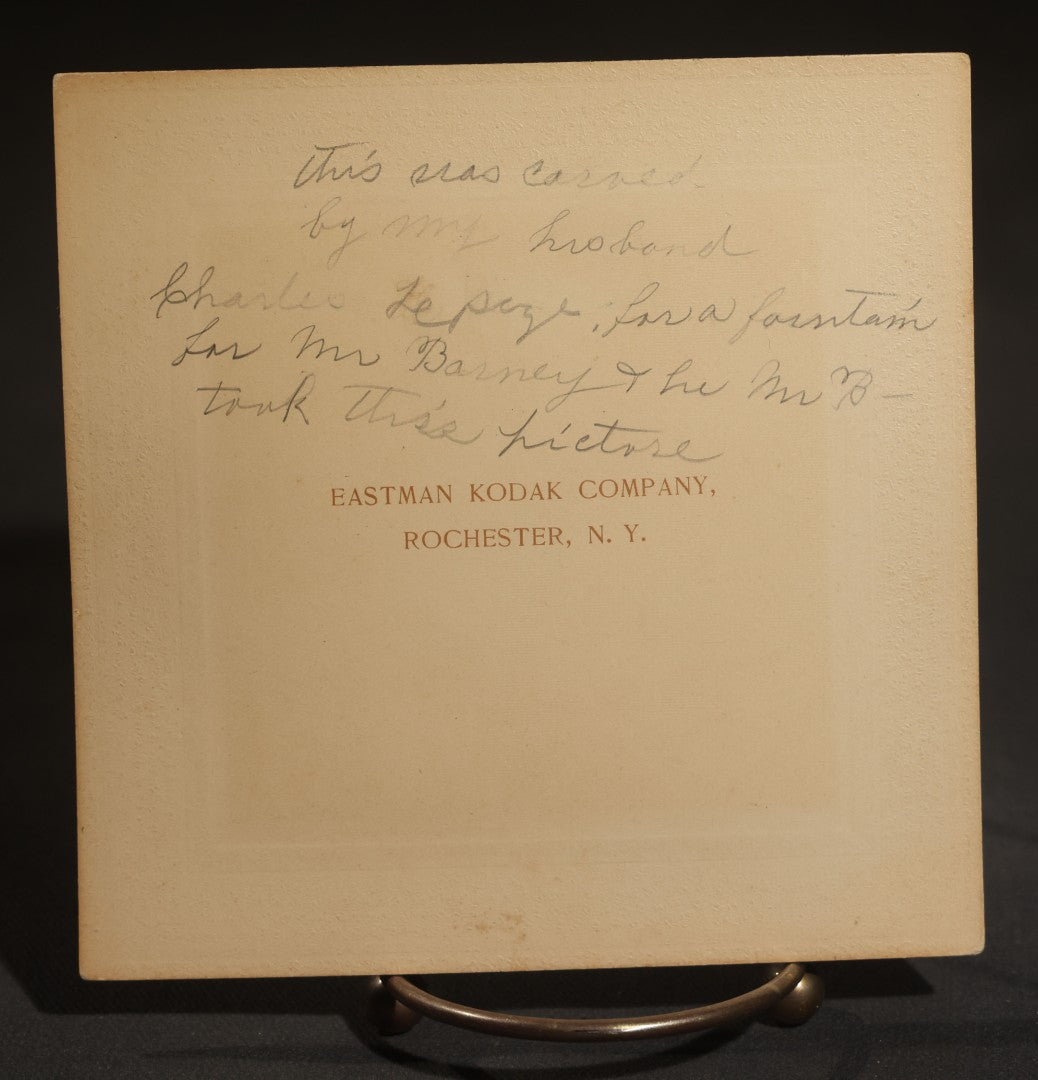 this was carved
by my husband
Charles for a fountain
for Mr Barney & he Mr B-
took this picture
EASTMAN KODAK COMPANY,
ROCHESTER, N. Y.